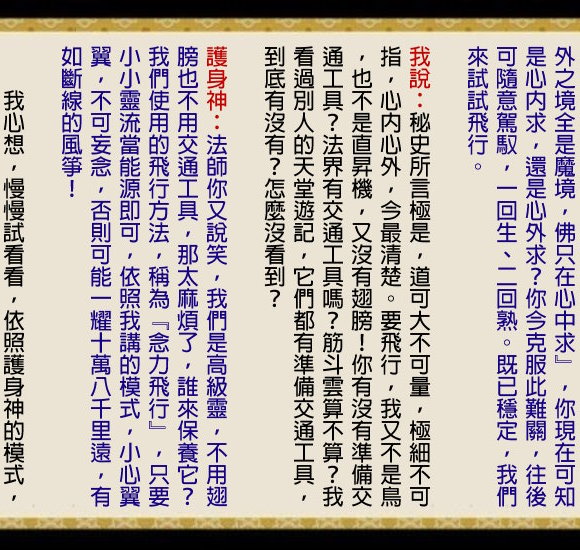 外之境全是魔境，佛只在心中求』，你現在可知
是心內求，還是心外求？你今克服此難關，往後
可隨意駕馭，一回生、二回熟。既已穩定，我們
來試試飛行。
我說：秘史所言極是，道可大不可量，極細不可
指，心內心外，今最清楚。要飛行，我又不是鳥
，也不是直昇機，又沒有翅膀！你有沒有準備交
通工具？法界有交通工具嗎？筋斗雲算不算？我
看過別人的天堂遊記，它們都有準備交通工具，
到底有沒有？怎麼沒看到？
護身神：法師你又說笑，我們是高級靈，不用翅
膀也不用交通工具，那太麻煩了，誰來保養它？
我們使用的飛行方法，稱為『念力飛行』，只要
小小靈流當能源即可，依照我講的模式，小心翼
翼，不可妄念，否則可能一耀十萬八千里遠，有
如斷線的風箏！
我心想，慢慢試看看，依照護身神的模式，